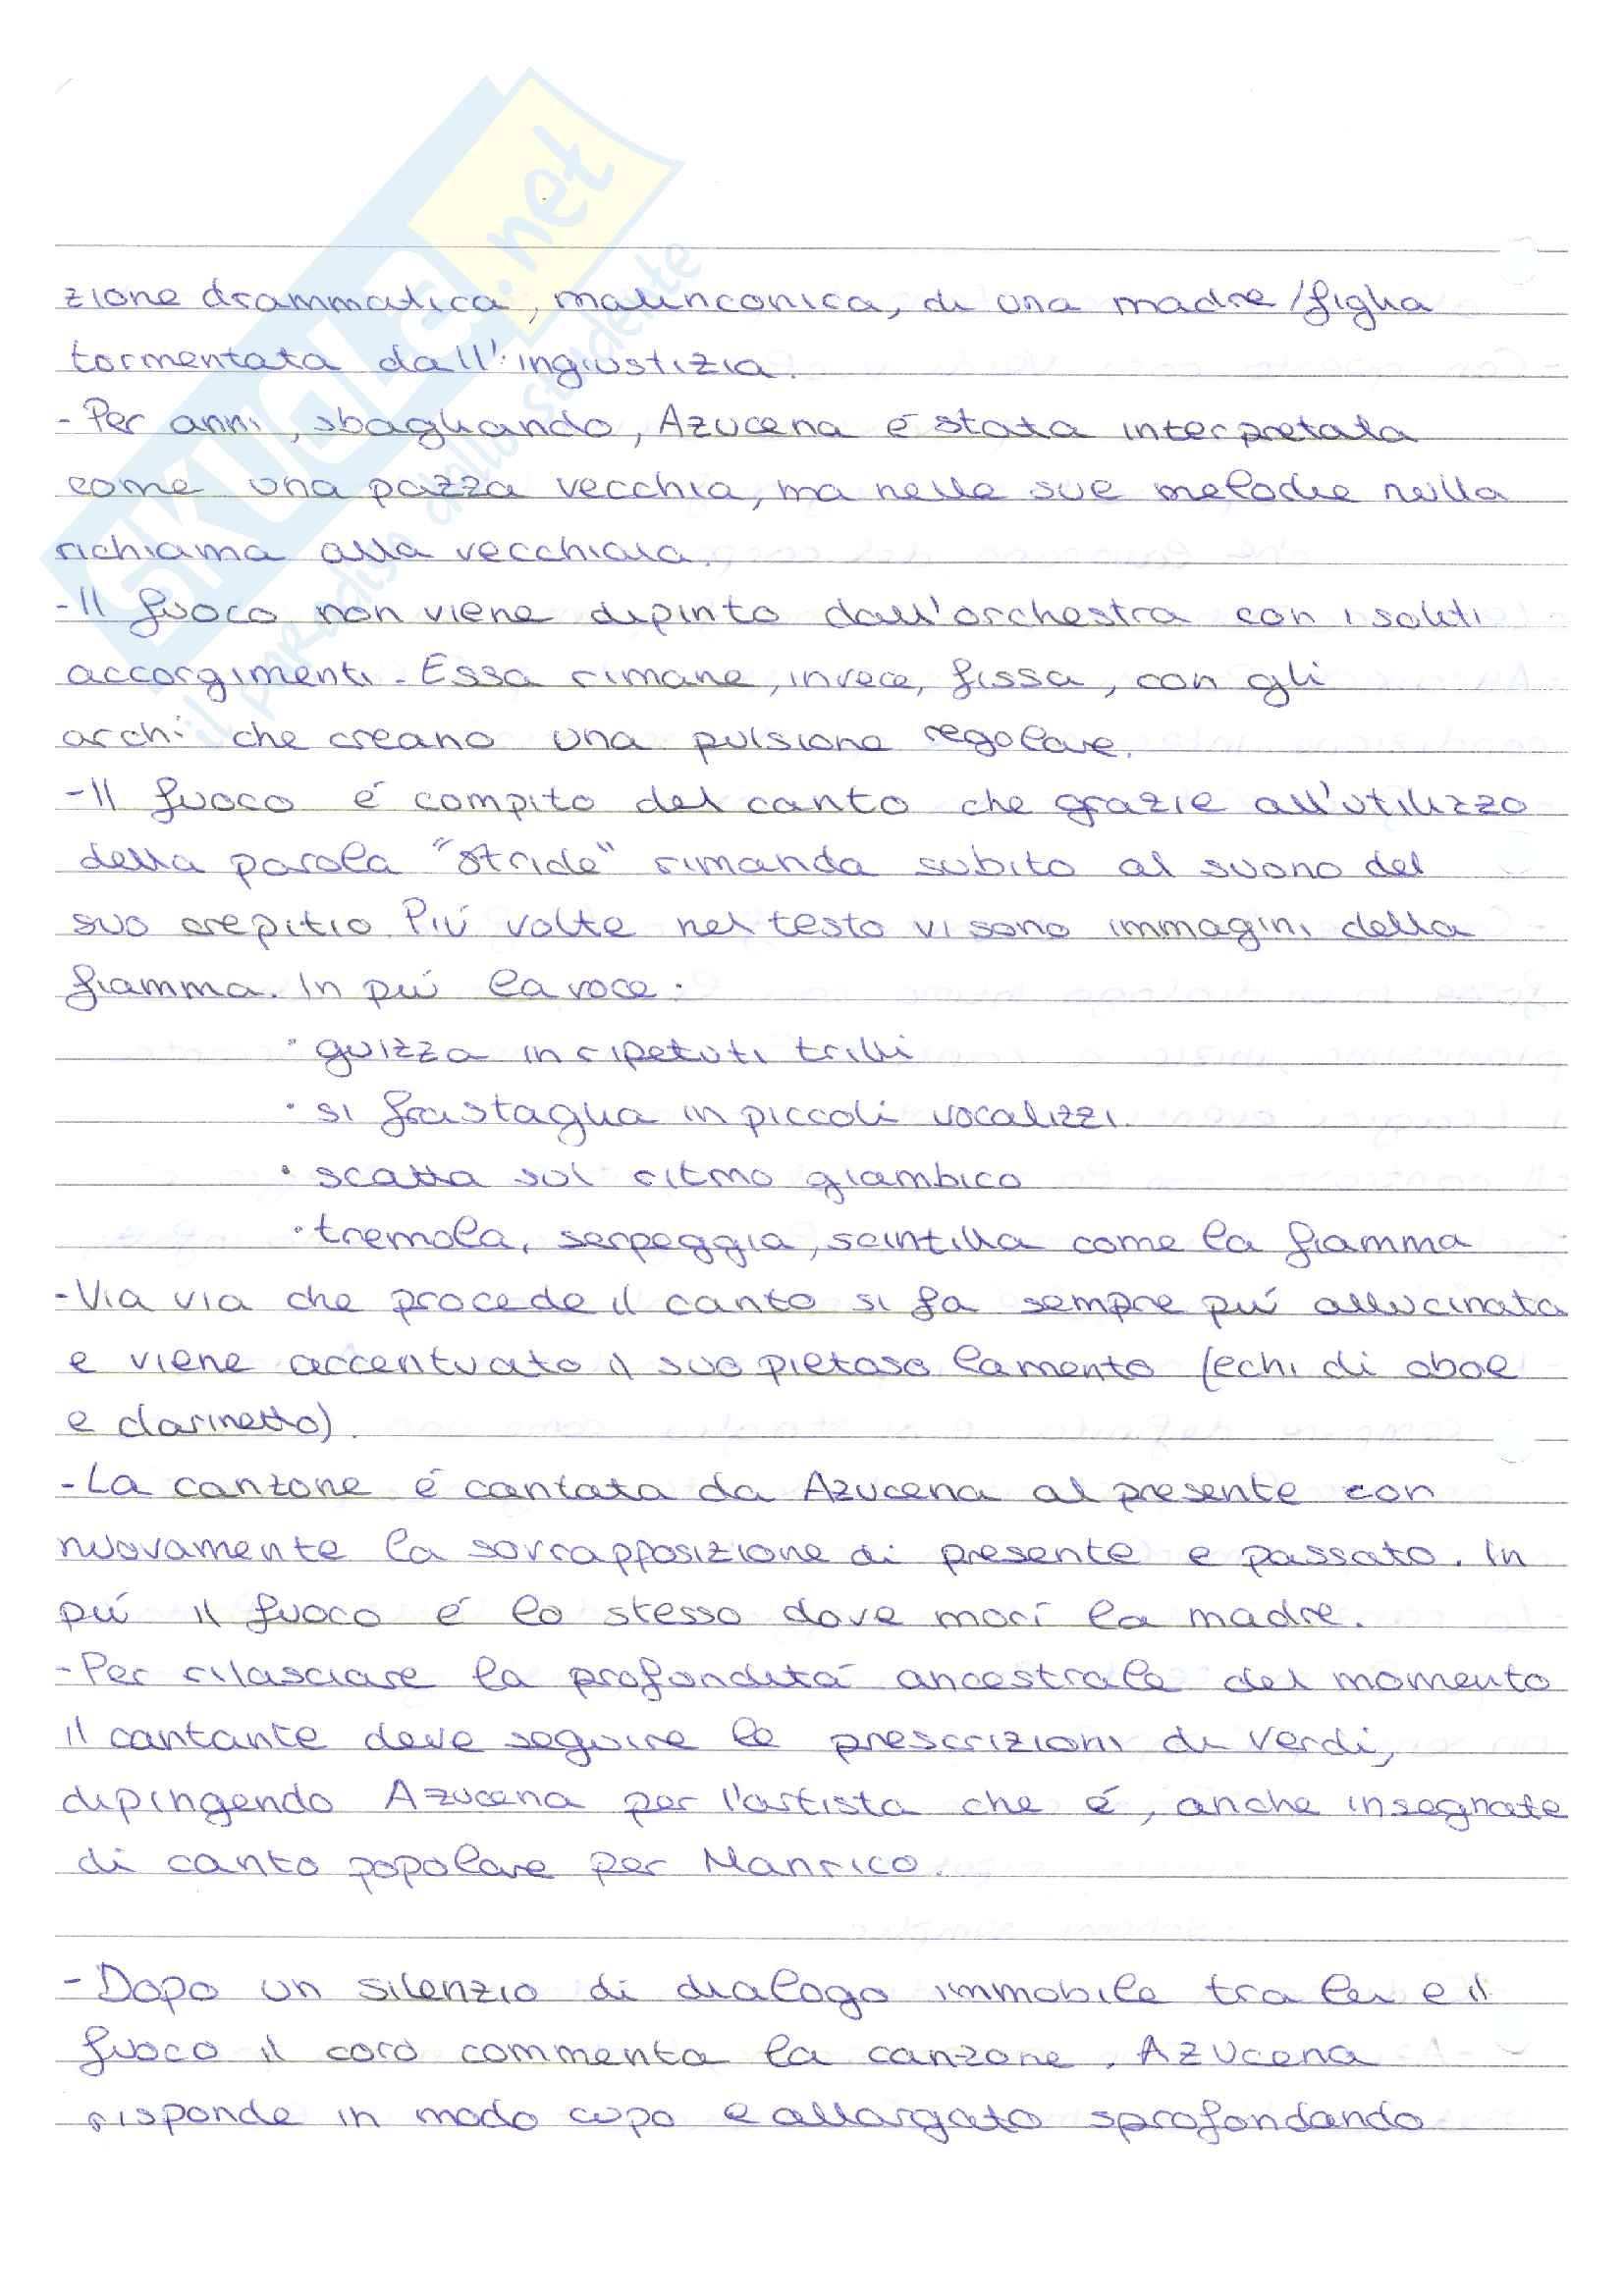 SKUOLA.net
il paradiso dello studente
zione drammatica, malinconica, di una madre/figlia
tormentata dall'ingiustizia.
- Per anni, sbagliando, Azucena é stata interpretata
come una pazza vecchia, ma nelle sue melodie nulla
richiama alla vecchiaia.
- Il fuoco non viene dipinto dall'orchestra con i soliti
accorgimenti. Essa rimane, invece, fissa, con gli
archi che creano una pulsione regolare.
- Il fuoco é compito del canto che grazie all'utilizzo
della parola "stride" rimanda subito al suono del
suo crepitio. Piú volte nel testo vi sono immagini della
fiamma. In piú la voce:
• guizza in ripetuti trilli
• si frastaglia in piccoli vocalizzi
• scatta sul ritmo giambico
• tremola, serpeggia, scintilla come la fiamma
- Via via che procede il canto si fa sempre piú allucinata
e viene accentuato il suo pietoso lamento (echi di oboe
e clarinetto).
- La canzone é cantata da Azucena al presente con
nuovamente la sovrapposizione di presente e passato. In
piú il fuoco é lo stesso dove morí la madre.
- Per rilasciare la profonditá ancestrale del momento
il cantante deve seguire le prescrizioni di Verdi,
dipingendo Azucena per l'artista che é, anche insegnate
di canto popolare per Manrico.
- Dopo un silenzio di dialogo immobile tra lei e il
fuoco il coro commenta la canzone, Azucena
risponde in modo cupo e allargato sprofondando